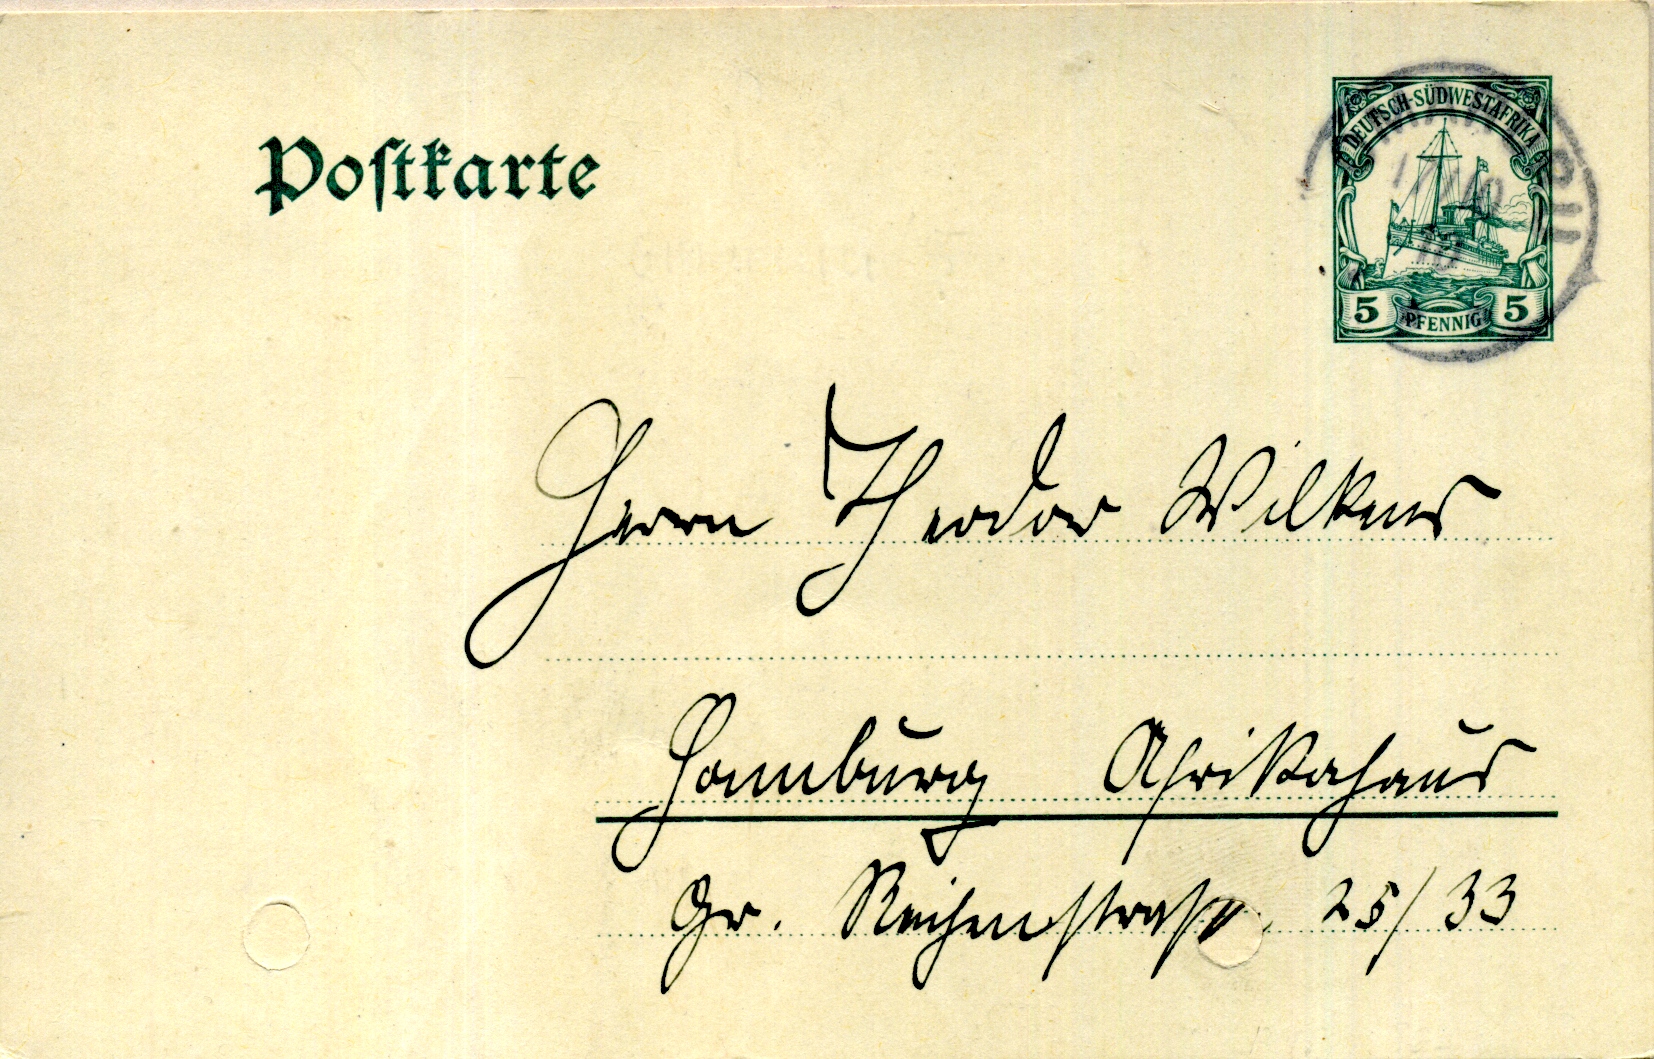 Postkarte
DEUTSCH-SÜDWESTAFRIKA
5 PFENNIG 5
Herrn Theodor Wilkens
Hamburg Afrikahaus
Gr. Reichenstraße 25/33